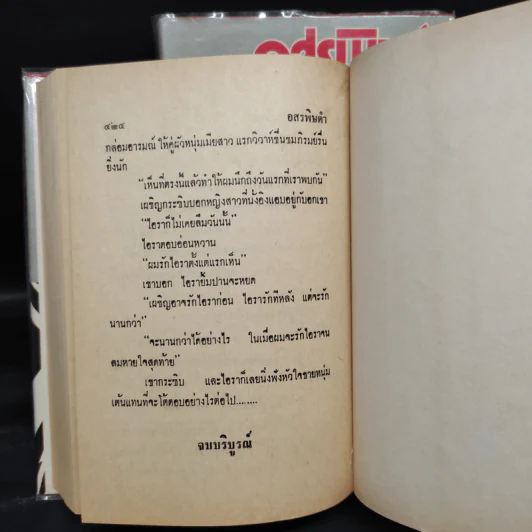 อสรพิษ
๔๒๔ อสรพิษดำ
กล่อมอารมณ์ ให้คู่ผัวหนุ่มเมียสาว แรกวิวาห์ชื่นชมภิรมย์รื่น
ยิ่งนัก
"เห็นที่ตรงนี้แล้วทำให้ผมนึกถึงวันแรกที่เราพบกัน"
เผชิญกระซิบบอกหญิงสาวที่นั่งอิงแอบอยู่กับอกเขา
"ไอราก็ไม่เคยลืมวันนั้น"
ไอราตอบอ่อนหวาน
"ผมรักไอราตั้งแต่แรกเห็น"
เขาบอก ไอรายิ้มปานจะหยด
"เผชิญอาจรักไอราก่อน ไอรารักทีหลัง แต่จะรัก
นานกว่า"
"จะนานกว่าได้อย่างไร ในเมื่อผมจะรักไอราจน
ลมหายใจสุดท้าย"
เขากระซิบ และไอราก็เลยนิ่งฟังหัวใจชายหนุ่ม
เต้นแทนที่จะโต้ตอบอย่างไรต่อไป........
จบบริบูรณ์